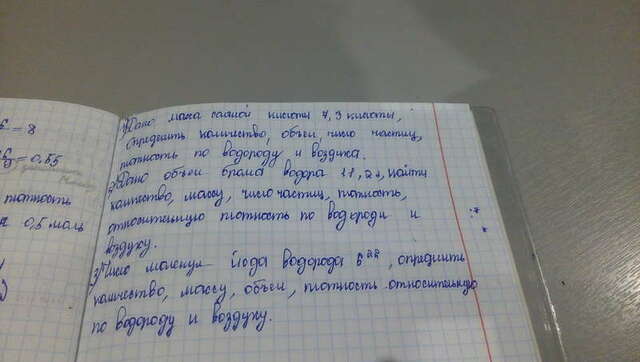 6 = 8
= 0,55
плотность
0,5 моль
1) Дано маса саляной кислоты 7,3 кислоты,
Определить количество, объем, число частиц,
плотность по водороду и воздуха.
2) Дано объем брама водора 11,2л, найти
количество, массу, число частиц, плотность,
относительную плотность по водороди и
воздуху.
3) Число молекул йода водорода 6²², определить
количество, массу, объем, плотность относительную
по водороду и воздуху.